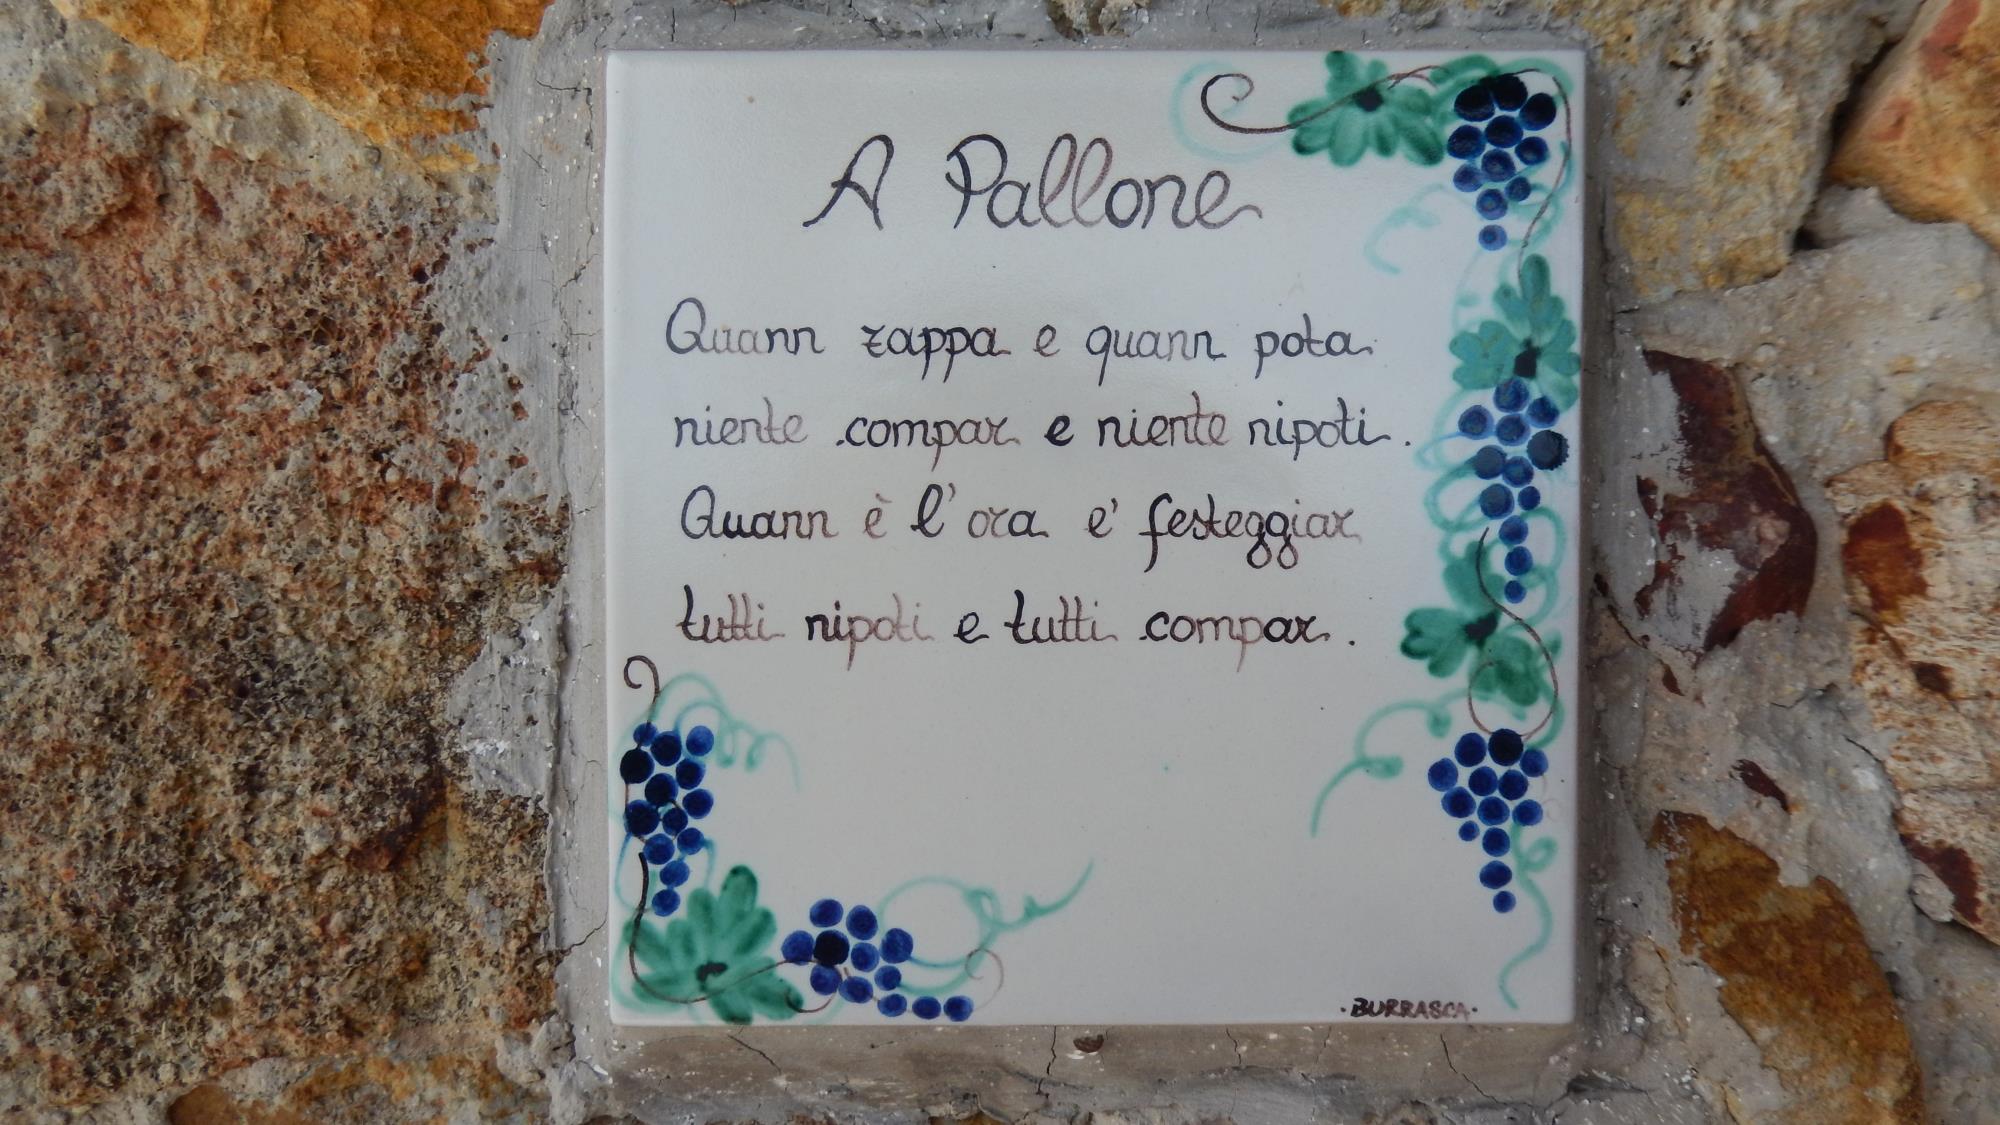 A Pallone
Quann zappa e quann pota
niente compar e niente nipoti.
Quann è l'ora e' festeggiar
tutti nipoti e tutti compar.
·BURRASCA·